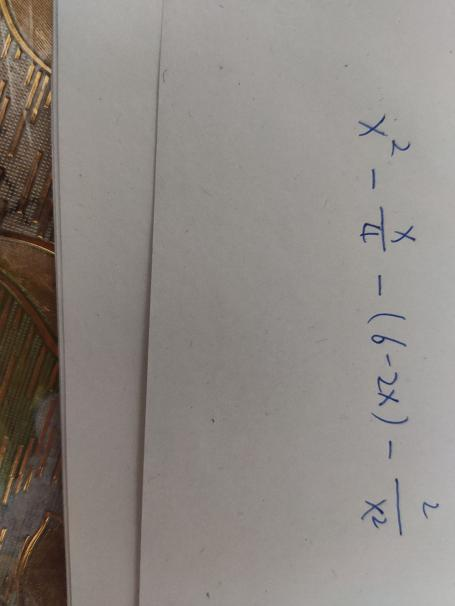 x² - x/4 - (6-2x) - 2/x²